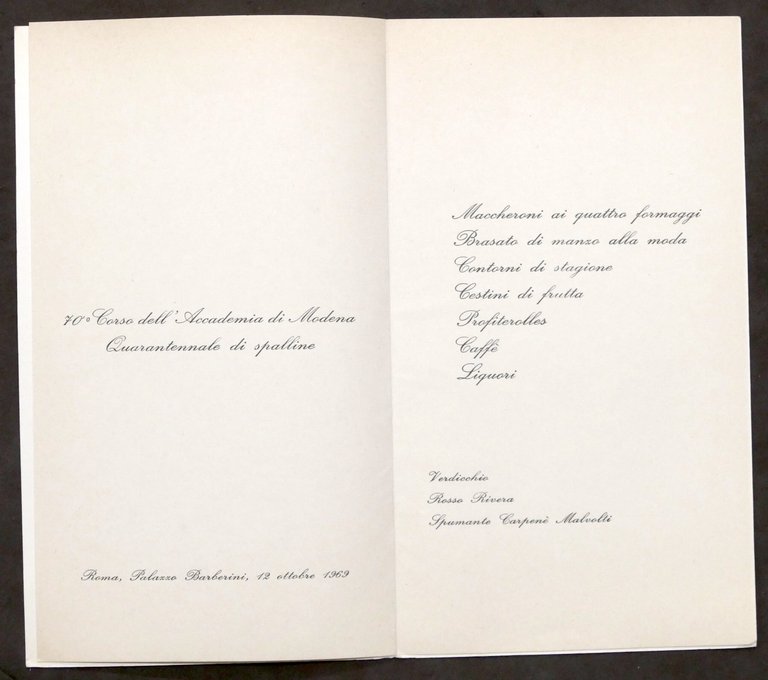 70º Corso dell'Accademia di Modena
Quarantennale di spalline
Roma, Palazzo Barberini, 12 ottobre 1969
Maccheroni ai quattro formaggi
Brasato di manzo alla moda
Contorni di stagione
Cestini di frutta
Profiterolles
Caffè
Liquori
Verdicchio
Rosso Rivera
Spumante Carpenè Malvolti